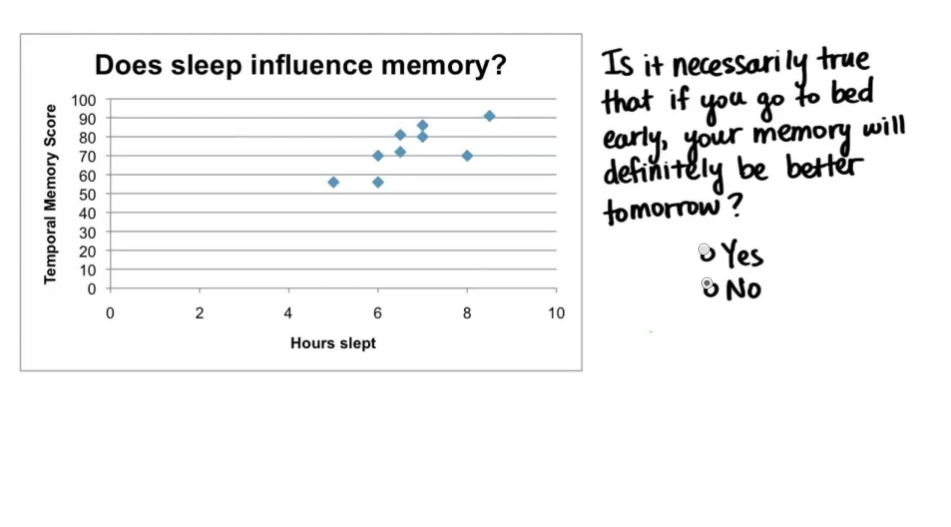 Does sleep influence memory?
Temporal Memory Score
100
90
80
70
60
50
40
30
20
10
0
0 2 4 6 8 10
Hours slept
Is it necessarily true
that if you go to bed
early, your memory will
definitely be better
tomorrow?
Yes
No